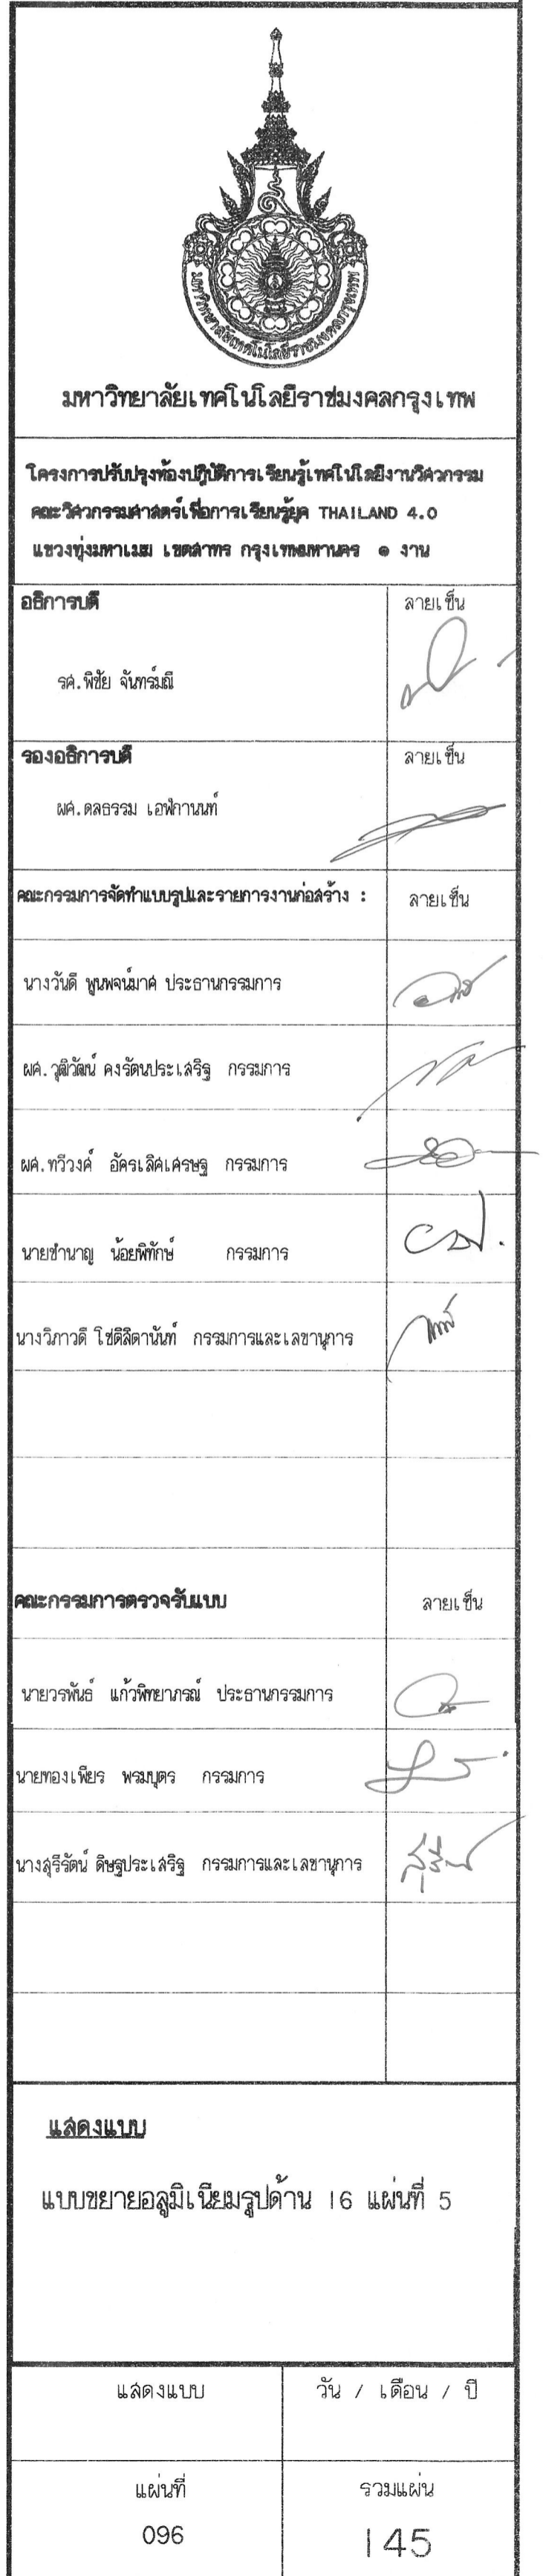 มหาวิทยาลัยเทคโนโลยีราชมงคลกรุงเทพ
มหาวิทยาลัยเทคโนโลยีราชมงคลกรุงเทพ
โครงการปรับปรุงห้องปฎิบัติการเรียนรู้เทคโนโลยีงานวิศวกรรม
คณะวิศวกรรมศาสตร์เพื่อการเรียนรู้ยุค THAILAND 4.0
แขวงทุ่งมหาเมฆ เขตสาทร กรุงเทพมหานคร ๑ งาน
อธิการบดี ลายเซ็น
รศ.พิชัย จันทร์มณี
รองอธิการบดี ลายเซ็น
ผศ.ดลธรรม เอฬกานนท์
คณะกรรมการจัดทำแบบรูปและรายการงานก่อสร้าง : ลายเซ็น
นางวันดี พูนพจน์มาศ ประธานกรรมการ
ผศ.วุฒิวัฒน์ คงรัตนประเสริฐ กรรมการ
ผศ.ทวีวงศ์ อัครเลิศเศรษฐ กรรมการ
นายชำนาญ น้อยพิทักษ์ กรรมการ
นางวิภาวดี โชติลิตานันท์ กรรมการและเลขานุการ
คณะกรรมการตรวจรับแบบ ลายเซ็น
นายวรพันธ์ แก้วพิทยาภรณ์ ประธานกรรมการ
นายทองเพียร พรมบุตร กรรมการ
นางสุรีรัตน์ ดิษฐประเสริฐ กรรมการและเลขานุการ
แสดงแบบ
แบบขยายอลูมิเนียมรูปด้าน 16 แผ่นที่ 5
แสดงแบบ วัน / เดือน / ปี
แผ่นที่ รวมแผ่น
096 145